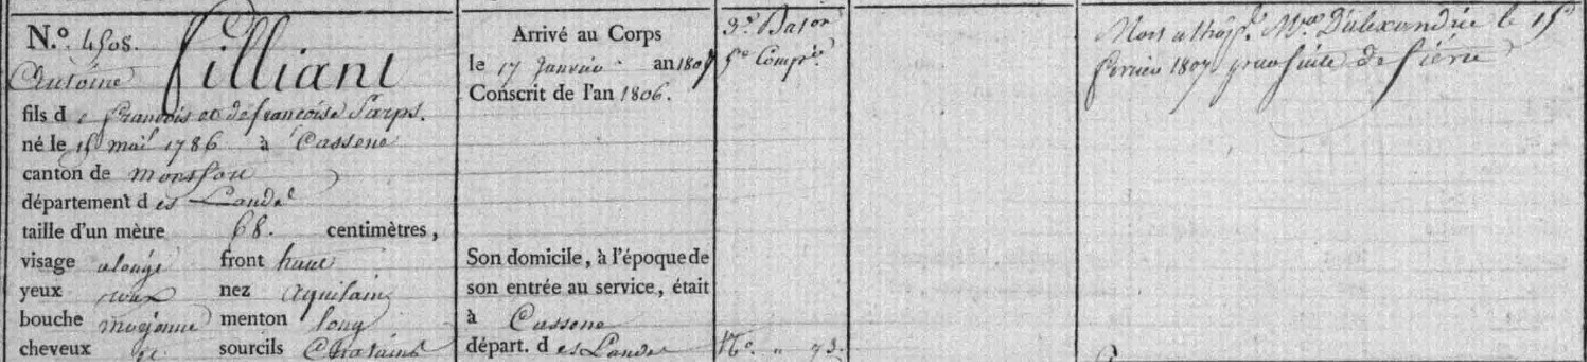 N.º 4508. Filliant
Antoine
fils de francois et de francoise Farps.
né le 15 mai 1786 à Cassene
canton de Monsfou
département des Landes
taille d'un mètre 68. centimètres,
visage alongé front haut
yeux roux nez aquilain
bouche moyenne menton long
cheveux et sourcils Chatains
Arrivé au Corps
le 17 Janvier an 1807
Conscrit de l'an 1806.
Son domicile, à l'époque de
son entrée au service, était
à Cassene
départ. des Landes
3.e Baton
5.e Comp.ie
N.o 73.
Mort à l'hôp.l M.re D'alexandrie le 15
fevrier 1807 par suite de fièvre